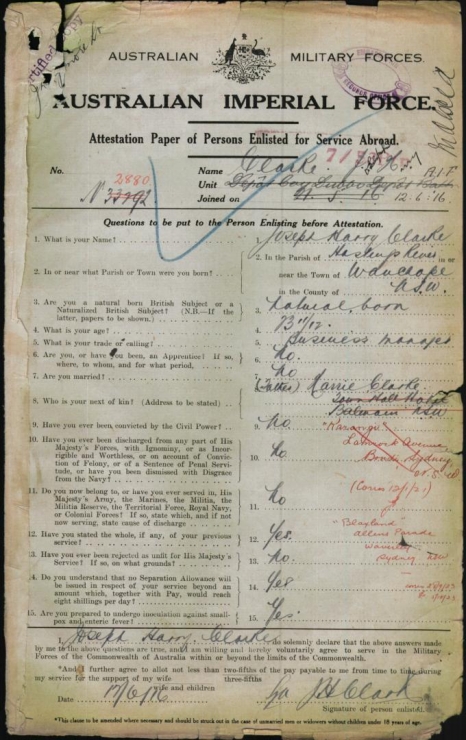 Certified Copy
AUSTRALIAN MILITARY FORCES.
AUSTRALIAN IMPERIAL FORCE.
Attestation Paper of Persons Enlisted for Service Abroad.
No. Name Clarke J. H.
2880
N 33292
Unit A.I.F
Joined on 12.6.16
Questions to be put to the Person Enlisting before Attestation.
1. What is your Name?
Joseph Harry Clarke
2. In or near what Parish or Town were you born?
2. In the Parish of in or
near the Town of Wauchope
in the County of N.S.W.
3. Are you a natural born British Subject or a
Naturalized British Subject? (N.B.—If the
latter, papers to be shown.)
3. Natural born
4. What is your age?
4.
5. What is your trade or calling?
5. Business Manager
6. Are you, or have you been, an Apprentice? If so,
where, to whom, and for what period,
6. No.
7. Are you married?
7. No
8. Who is your next of kin? (Address to be stated)
8. Clarke
Balmain NSW
9. Have you ever been convicted by the Civil Power?
9. No.
10. Have you ever been discharged from any part of His
Majesty's Forces, with Ignominy, or as Incor-
rigible and Worthless, or on account of Convic-
tion of Felony, or of a Sentence of Penal Servi-
tude, or have you been dismissed with Disgrace
from the Navy?
10. No
Avenue
Bondi Sydney
11. Do you now belong to, or have you ever served in, His
Majesty's Army, the Marines, the Militia, the
Militia Reserve, the Territorial Force, Royal Navy,
or Colonial Forces? If so, state which, and if not
now serving, state cause of discharge
11. No
12. Have you stated the whole, if any, of your previous
service?
12. Yes.
"Blayland"
Allens Parade
Waverley
Sydney NSW
13. Have you ever been rejected as unfit for His Majesty's
Service? If so, on what grounds?
13. No.
14. Do you understand that no Separation Allowance will
be issued in respect of your service beyond an
amount which, together with Pay, would reach
eight shillings per day?
14. Yes
15. Are you prepared to undergo inoculation against small-
pox and enteric fever?
15. Yes.
I, Joseph Harry Clarke do solemnly declare that the above answers made
by me to the above questions are true, and I am willing and hereby voluntarily agree to serve in the Military
Forces of the Commonwealth of Australia within or beyond the limits of the Commonwealth.
*And I further agree to allot not less than two-fifths of the pay payable to me from time to time during
my service for the support of my wife three-fifths
wife and children
Date 12/6/16 J H Clark
Signature of person enlisted.
*This clause to be amended where necessary and should be struck out in the case of unmarried men or widowers without children under 18 years of age.